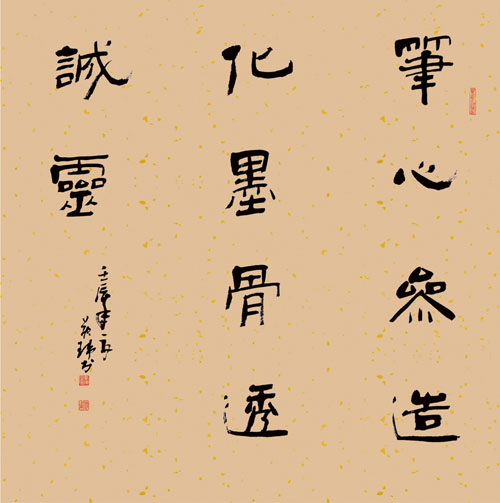 筆心參造
化墨骨透
誠靈
壬辰
书